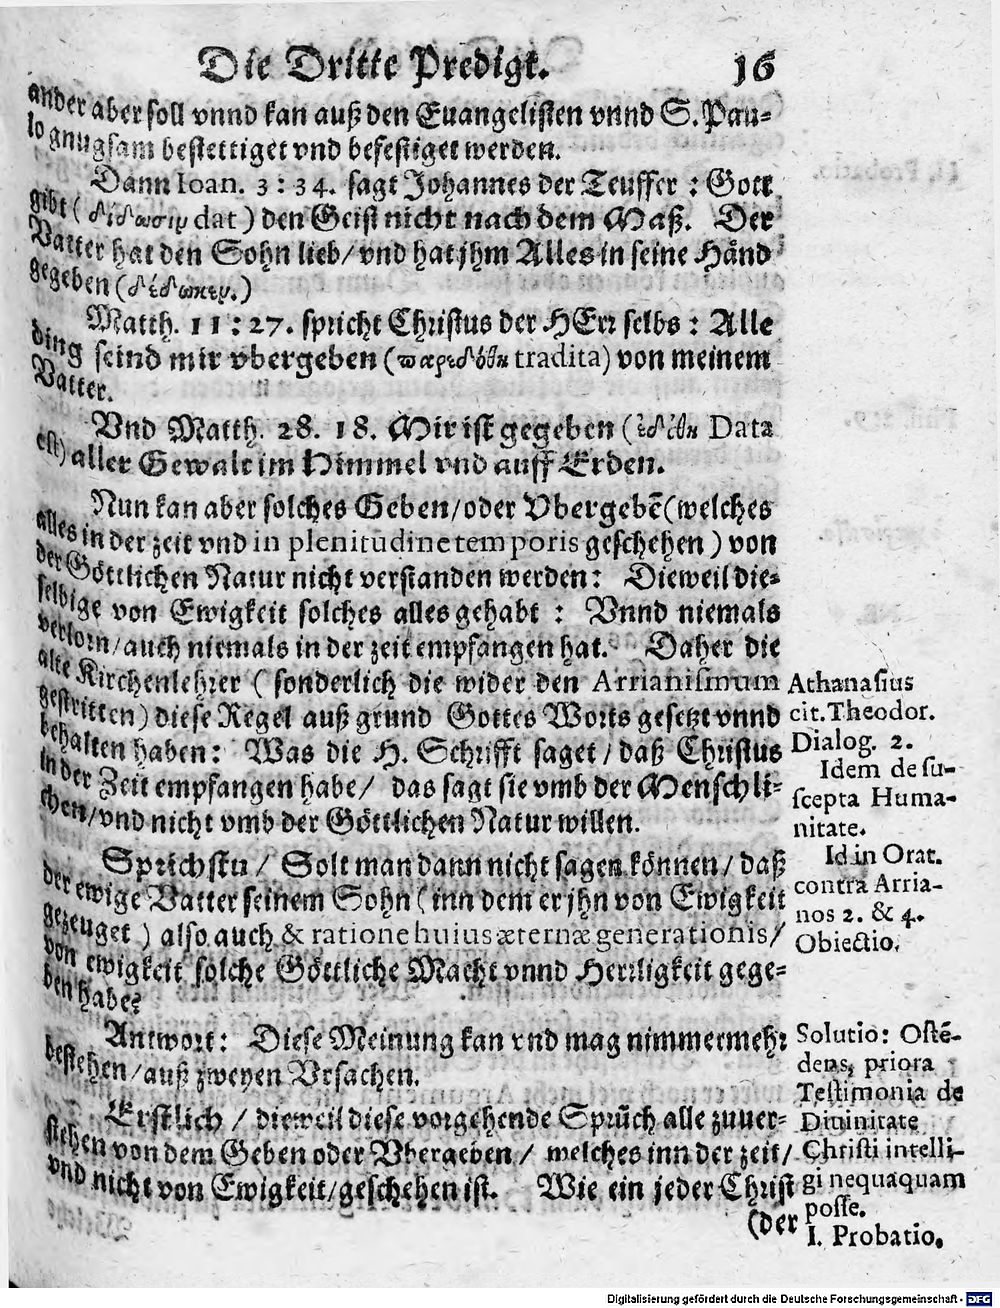 Die Dritte Predigt. 16
ander aber soll vnnd kan auß den Euangelisten vnnd S. Pau-
lo gnugsam bestettiget vnd befestiget werden.
Dann Ioan. 3 : 34. sagt Johannes der Teuffer : Gott
gibt ( δίδωσιν dat ) den Geist nicht nach dem Maß. Der
Vatter hat den Sohn lieb/ vnd hat jhm Alles in seine Händ
gegeben (δέδωκεν.)
Matth. 11 : 27. spricht Christus der HErr selbs : Alle
ding seind mir vbergeben (παρεδόθη tradita) von meinem
Vatter.
Vnd Matth. 28. 18. Mir ist gegeben (ἐδόθη Data
est) aller Gewalt im Himmel vnd auff Erden.
Nun kan aber solches Geben/oder Vbergebē(welches
alles in der zeit vnd in plenitudine temporis geschehen ) von
der Göttlichen Natur nicht verstanden werden : Dieweil die-
selbige von Ewigkeit solches alles gehabt : Vnnd niemals
verlorn/auch niemals in der zeit empfangen hat. Daher die
alte Kirchenlehrer ( sonderlich die wider den Arrianismum
gestritten) diese Regel auß grund Gottes Worts gesetzt vnnd
behalten haben : Was die H. Schrifft saget / daß Christus
in der Zeit empfangen habe/ das sagt sie vmb der Menschli-
chen/vnd nicht vmb der Göttlichen Natur willen.
Sprichstu / Solt man dann nicht sagen können/ daß
der ewige Vatter seinem Sohn ( inn dem er jhn von Ewigkeit
gezeuget ) also auch & ratione huius æternæ generationis/
von ewigkeit solche Göttliche Macht vnnd Herrligkeit gege-
ben habe?
Antwort : Diese Meinung kan vnd mag nimmermehr
bestehen/auß zweyen Vrsachen.
Erstlich / dieweil diese vorgehende Sprüch alle zuuer-
stehen von dem Geben oder Vbergeben / welches inn der zeit/
vnd nicht von Ewigkeit/geschehen ist. Wie ein jeder Christ
(der
Athanasius
cit. Theodor.
Dialog. 2.
Idem de su-
scepta Huma-
nitate.
Id in Orat.
contra Arria-
nos 2. & 4.
Obiectio.
Solutio: Ostē-
dens, priora
Testimonia de
Diuinitate
Christi intelli-
gi nequaquam
posse.
I. Probatio.
Digitalisierung gefördert durch die Deutsche Forschungsgemeinschaft - DFG